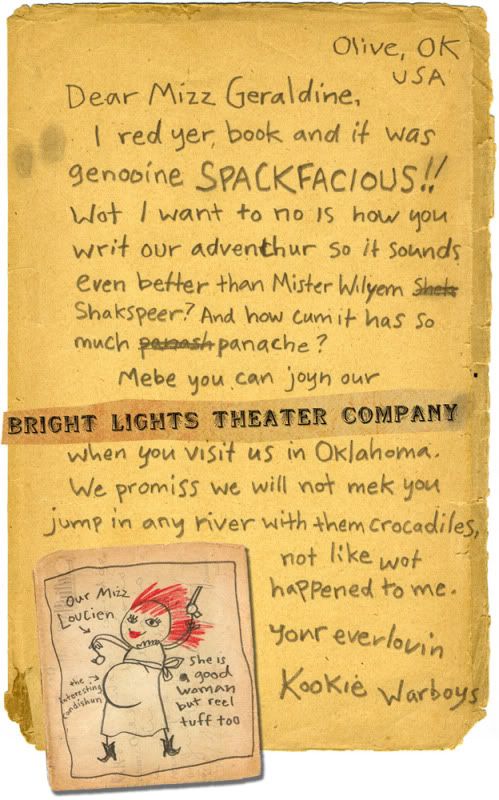 Olive, OK
USA
Dear Mizz Geraldine,
I red yer book and it was
genooine SPACKFACIOUS!!
Wot I want to no is how you
writ our adventhur so it sounds
even better than Mister Wilyem Shek
Shakspeer? And how cum it has so
much panash panache?
Mebe you can joyn our
BRIGHT LIGHTS THEATER COMPANY
when you visit us in Oklahoma.
We promiss we will not mek you
jump in any river with them crocadiles,
not like wot
happened to me.
your everlovin
Kookie Warboys
our Mizz
Loucien
the
interesting
condishun
she is
a good
woman
but reel
tuff too